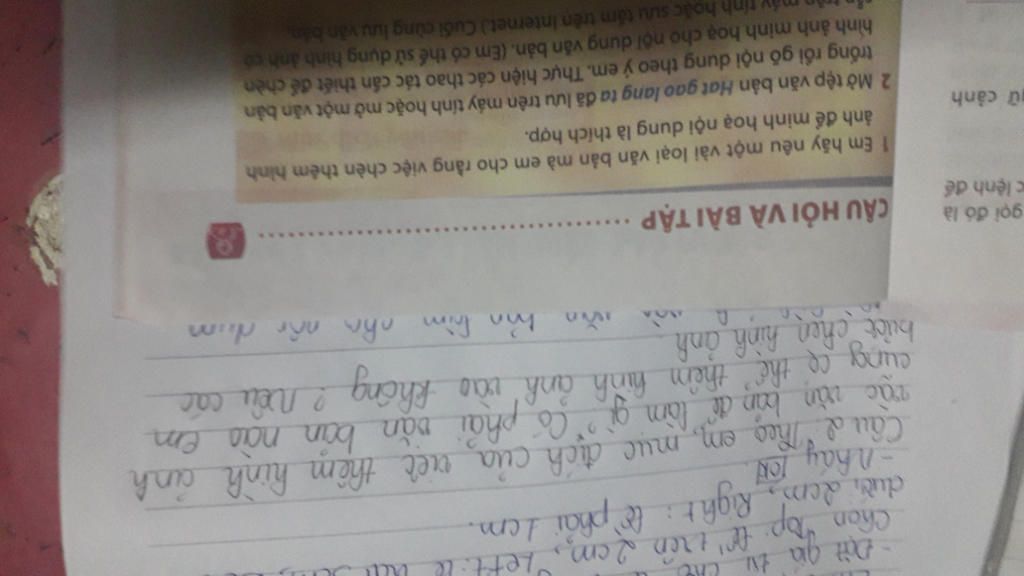 - Đặt giá trị cho
Chọn Top: lề trên 2cm, Left: lề
dưới 2cm, Right: lề phải 1cm.
- Nháy [OK]
Câu 2. Theo em, mục đích của việt thêm hình ảnh
vào văn bản để làm gì? Có phải văn bản nào em
cũng có thể thêm hình ảnh vào không? Nêu các
bước chèn hình ảnh
CÂU HỎI VÀ BÀI TẬP
1 Em hãy nêu một vài loại văn bản mà em cho rằng việc chèn thêm hình
ảnh để minh hoạ nội dung là thích hợp.
2 Mở tệp văn bản Hat gao lang ta đã lưu trên máy tính hoặc mở một văn bản
trống rồi gõ nội dung theo ý em. Thực hiện các thao tác cần thiết để chèn
hình ảnh minh hoạ cho nội dung văn bản. (Em có thể sử dụng hình ảnh có
sẵn trên máy tính hoặc sưu tầm trên Internet.) Cuối cùng lưu văn bản.
gọi đó là
lệnh để
cảnh